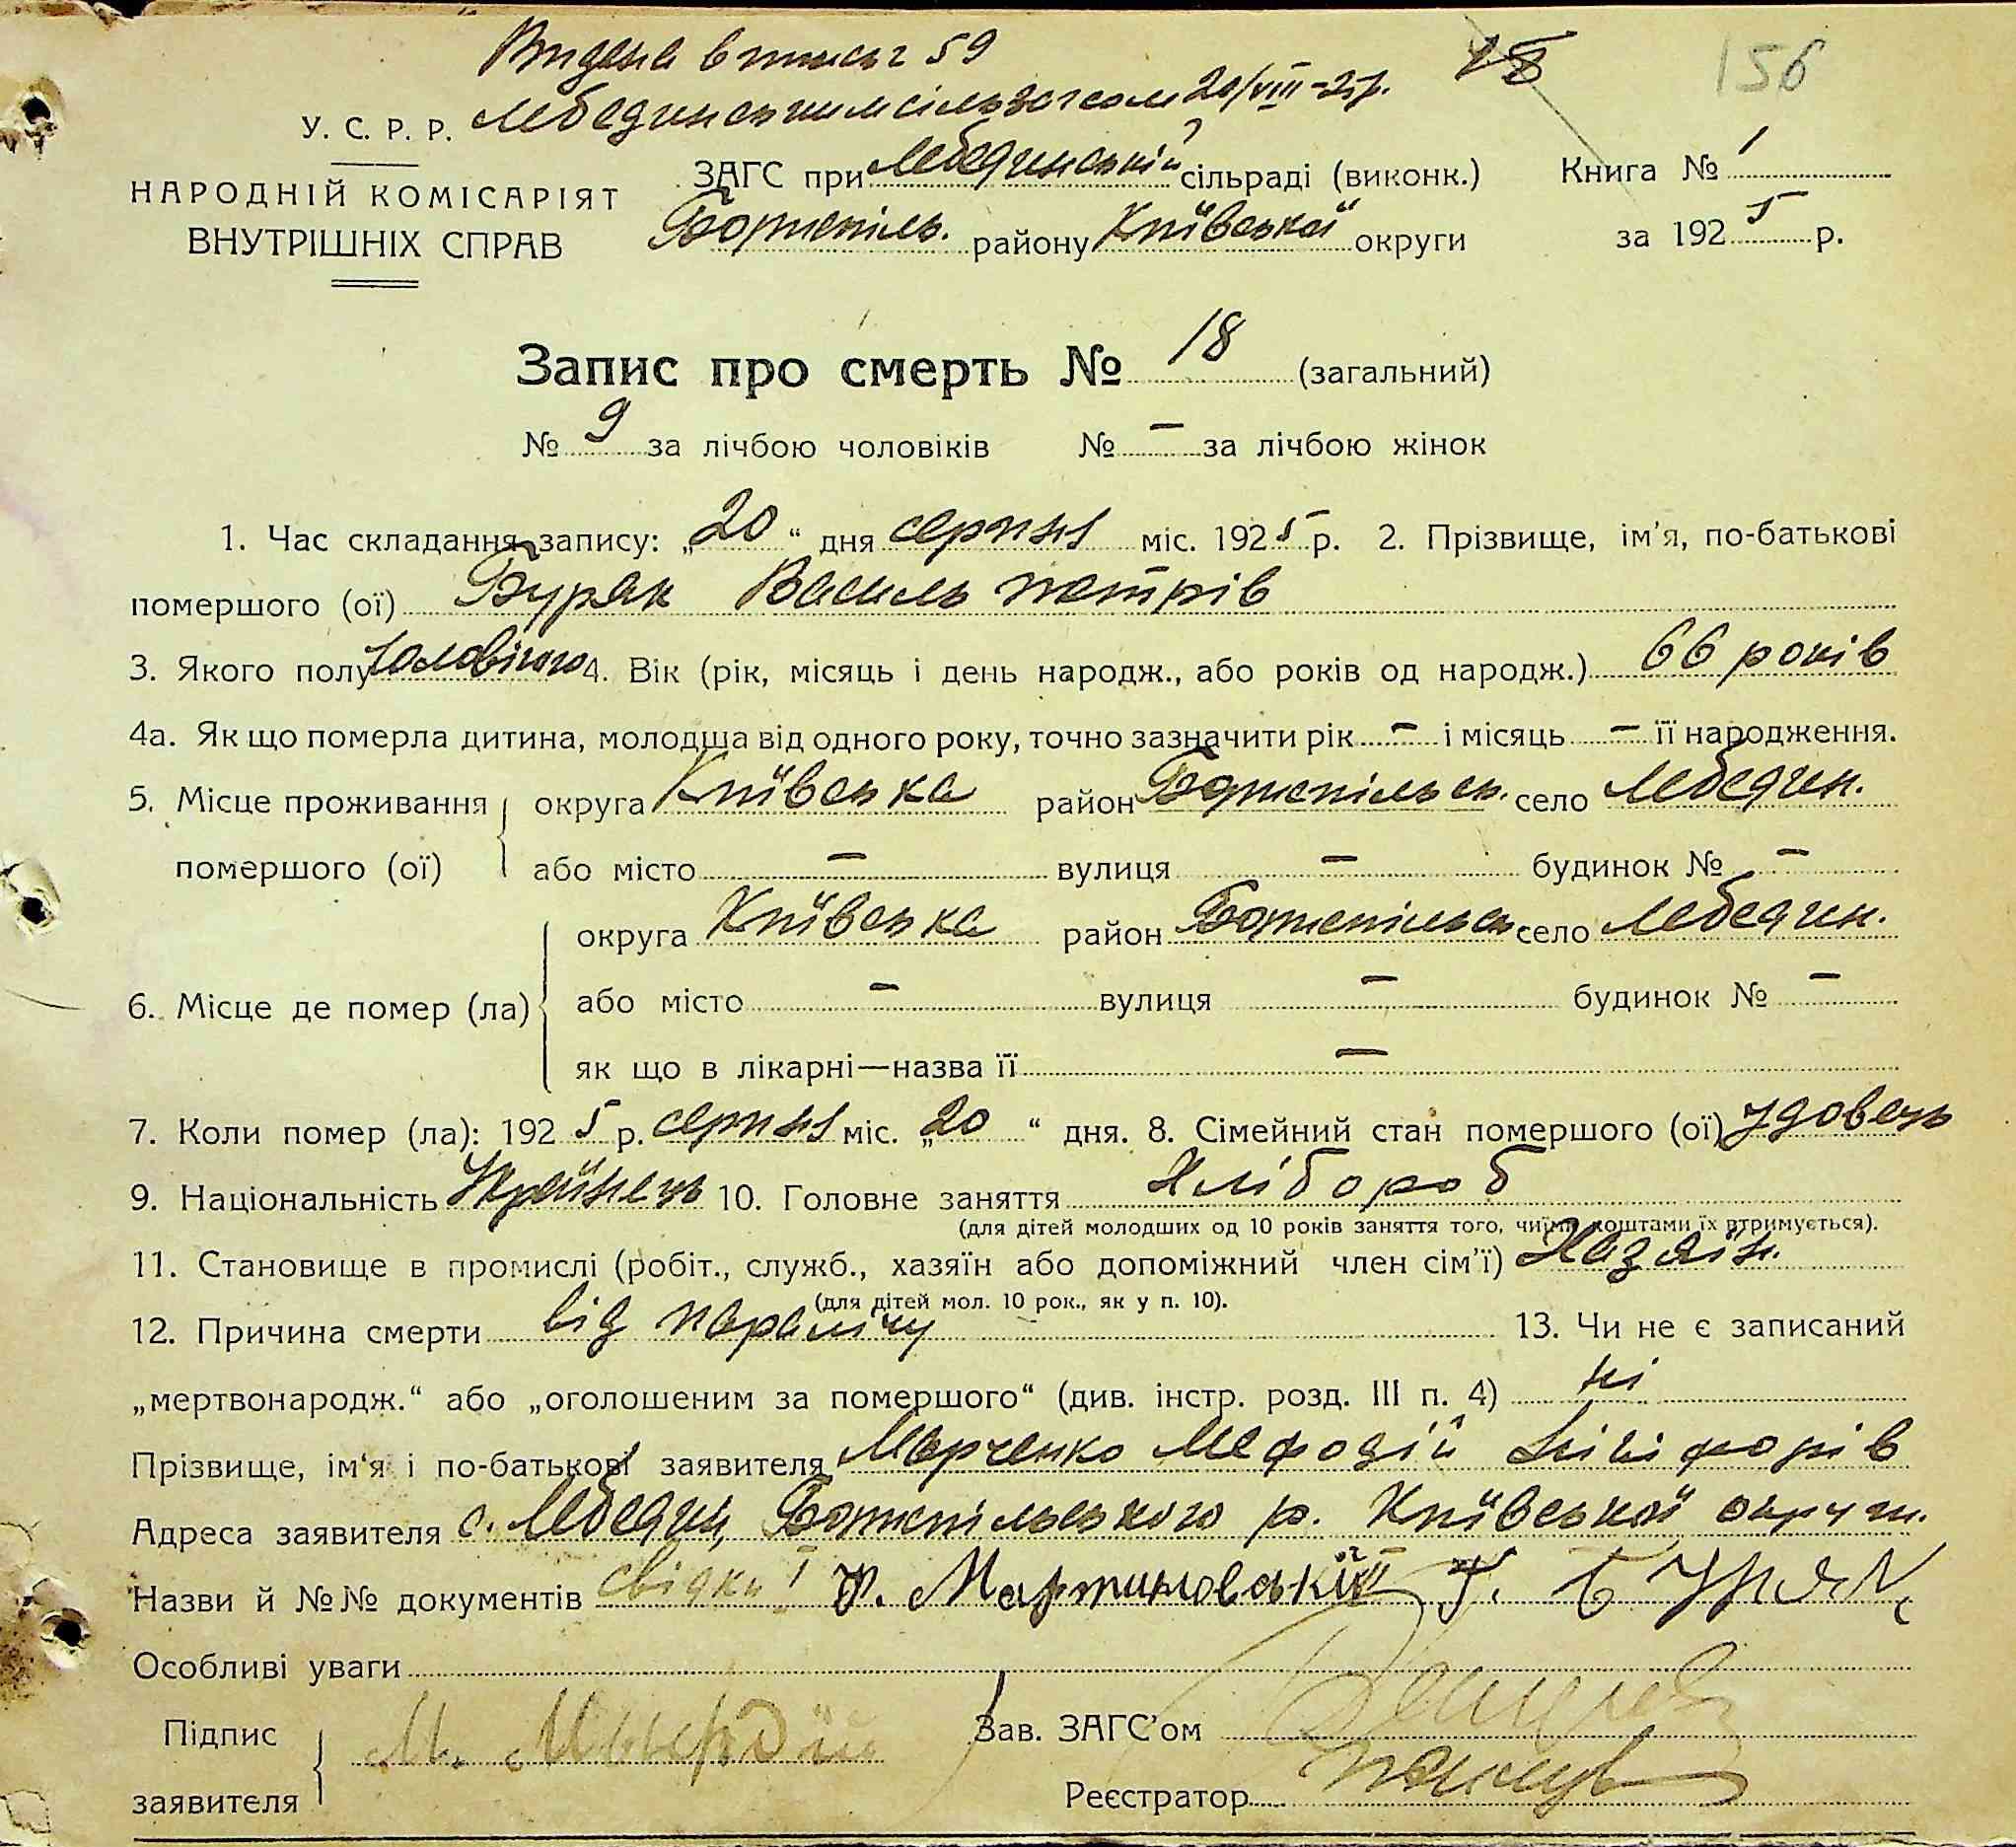 Видана виписъ 59
Лебединським сільзагсом 20/VIII-25р. 18 156
У. С. Р. Р.
НАРОДНІЙ КОМІСАРІЯТ
ВНУТРІШНІХ СПРАВ
ЗАГС при Лебединській сільраді (виконк.)
Бориспіль. району Київської округи
Книга № 1
за 1925 р.
Запис про смерть № 18 (загальний)
№ 9 за лічбою чоловіків № – за лічбою жінок
1. Час складання запису: „20“ дня серпня міс. 1925 р. 2. Прізвище, ім'я, по-батькові
помершого (ої) Буряк Василь Петрів
3. Якого полу чоловічого 4. Вік (рік, місяць і день народж., або років од народж.) 66 років
4а. Як що померла дитина, молодша від одного року, точно зазначити рік – і місяць – її народження.
5. Місце проживання округа Київська район Бориспільск. село Лебедин.
помершого (ої) або місто – вулиця – будинок № –
округа Київська район Бориспільск. село Лебедин.
6. Місце де помер (ла) або місто – вулиця – будинок № –
як що в лікарні—назва її –
7. Коли помер (ла): 1925 р. серпня міс. „20“ дня. 8. Сімейний стан помершого (ої) удовець
9. Національність Українець 10. Головне заняття Хлібороб
(для дітей молодших од 10 років заняття того, чиїми коштами їх втримується).
11. Становище в промислі (робіт., служб., хазяїн або допоміжний член сім'ї) Хазяїн.
(для дітей мол. 10 рок., як у п. 10).
12. Причина смерти від параліцу 13. Чи не є записаний
„мертвонародж.“ або „оголошеним за помершого“ (див. інстр. розд. III п. 4) ні
Прізвище, ім'я і по-батькові заявителя Марченко Мефодій Нікіфорів
Адреса заявителя с. Лебедин, Бориспільського р. Київської округи.
Назви й №№ документів свідки I Ф. Мартиновський II Т. БУРЯК
Особливі уваги
Підпис
заявителя М.
Зав. ЗАГС'ом
Реєстратор